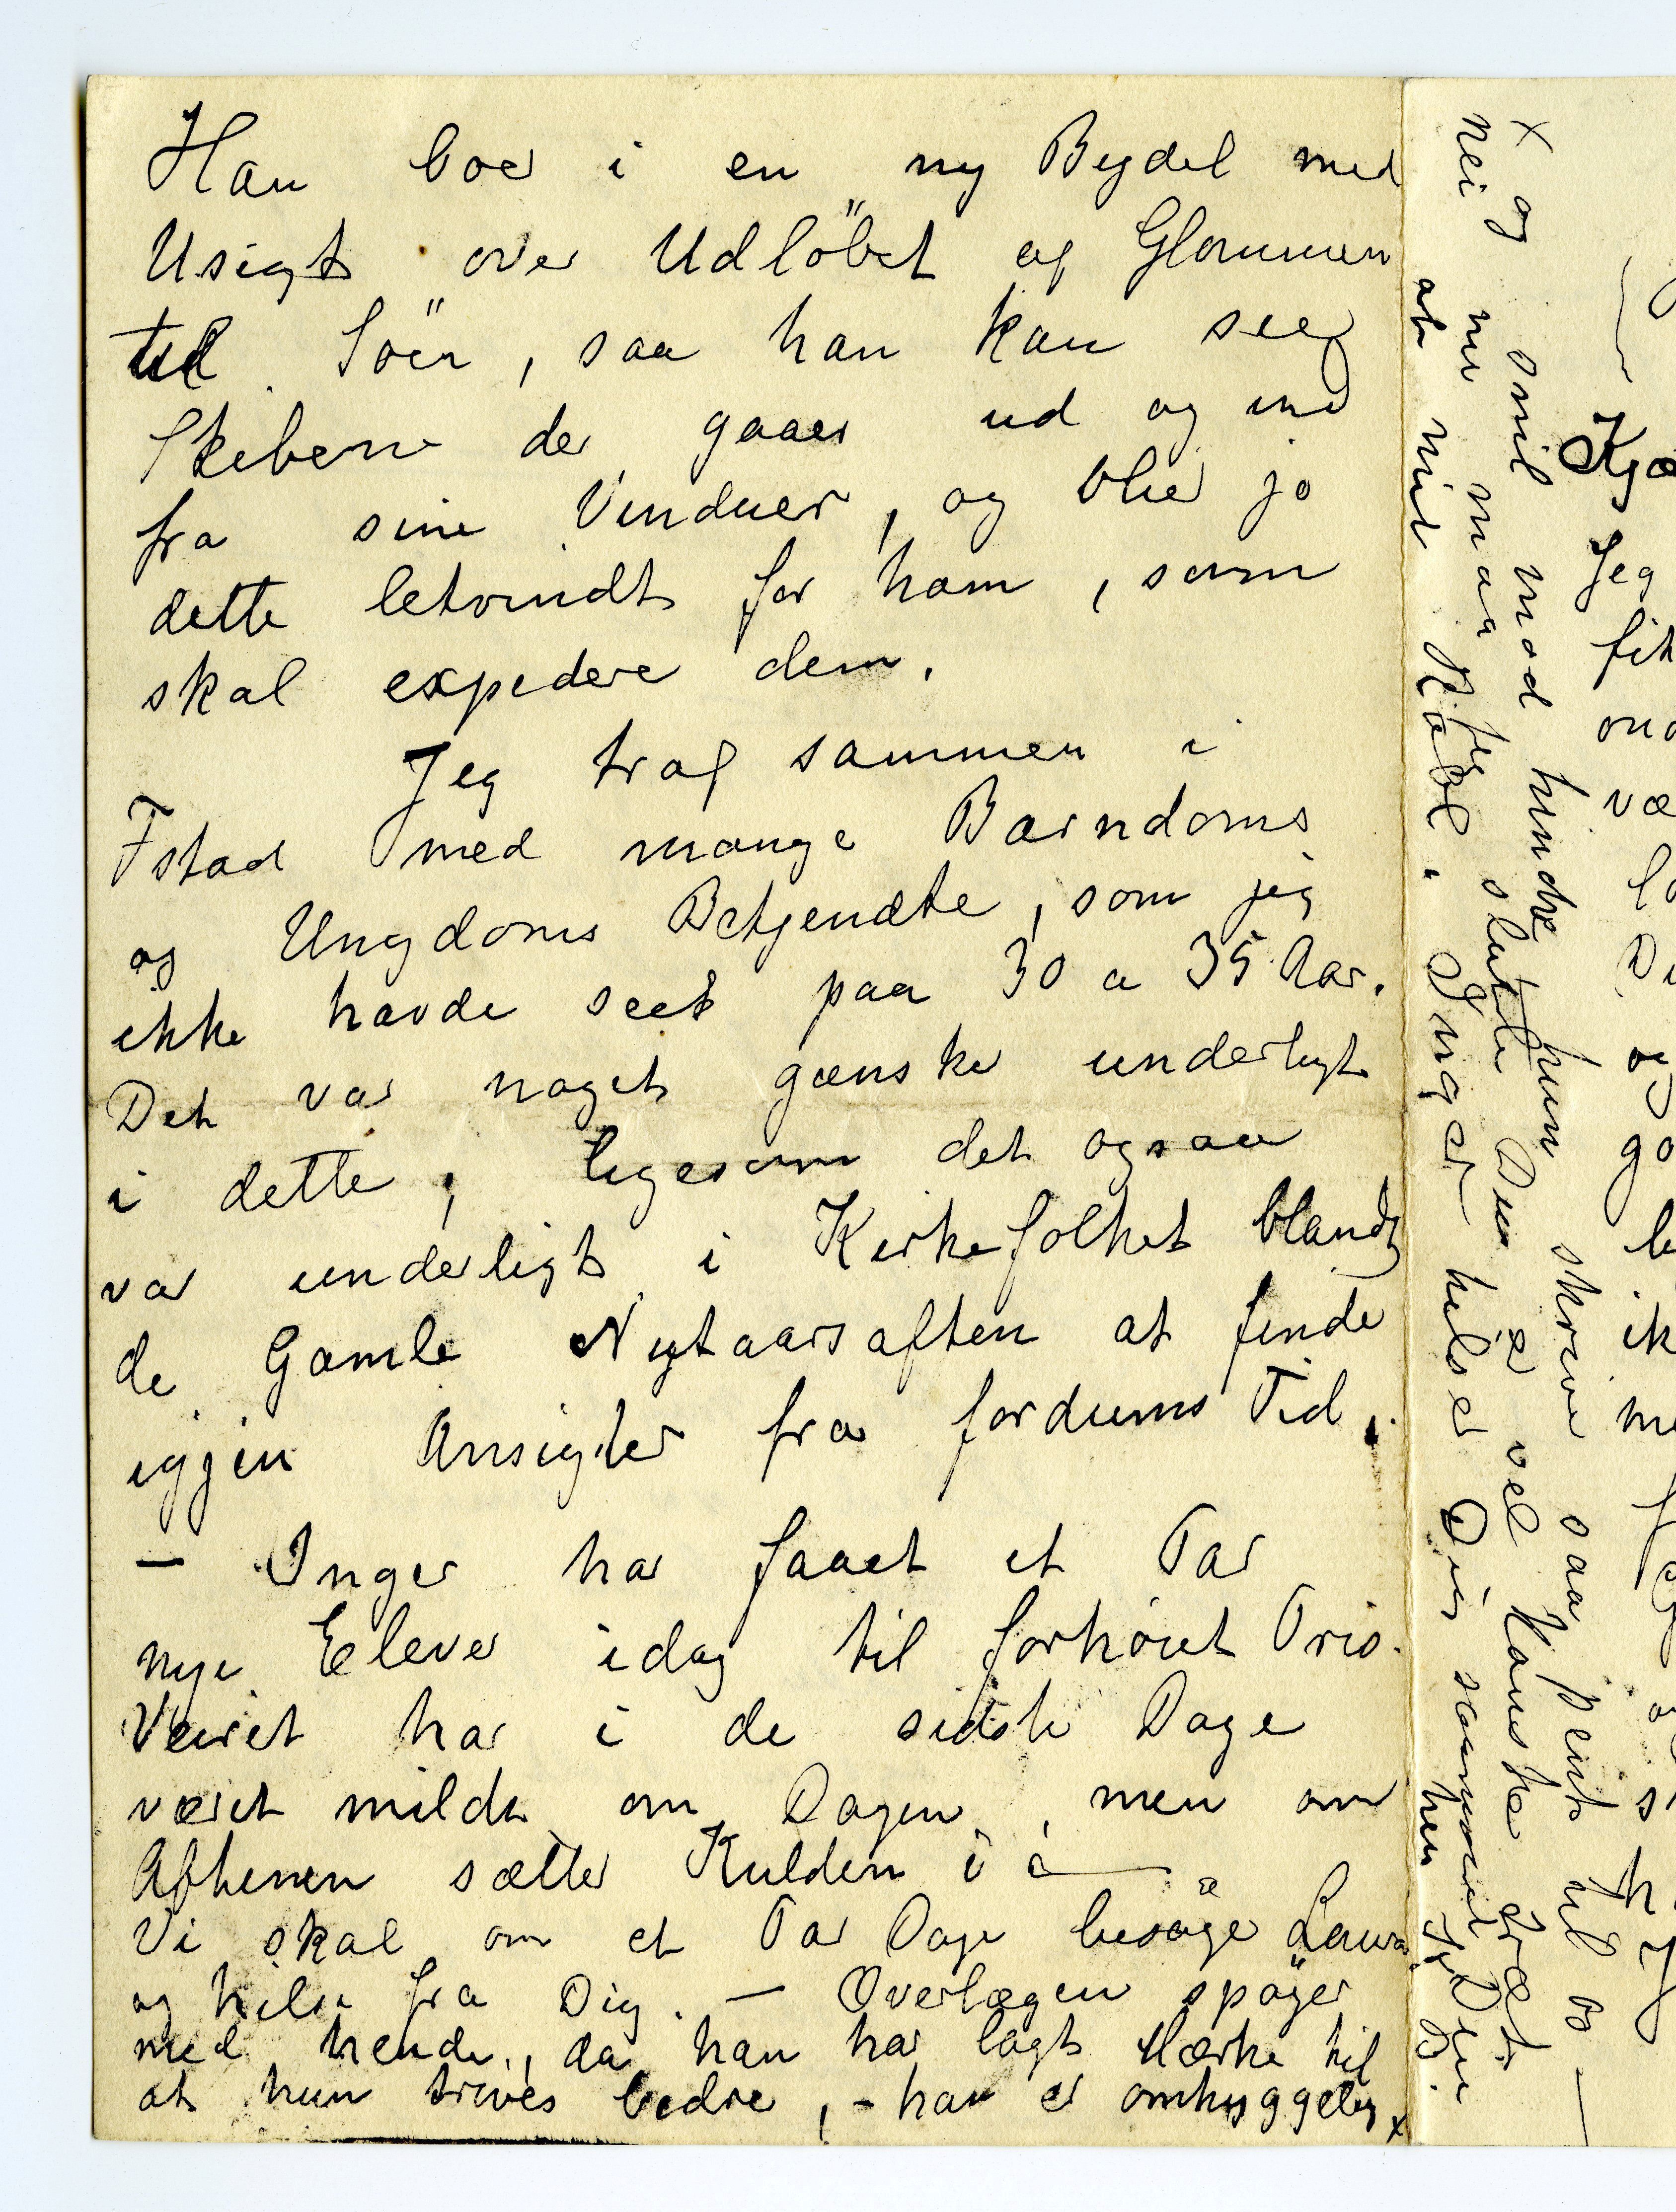 Han boer i en ny Bydel med
Usigt over Udlöbet af Glommen
til Söen, saa han kan see
Skibene der gaaer ud og ind
fra sine Vinduer, og blier jo
dette letvindt for ham, som
skal expedere dem.
Jeg traf sammen i
Fstad med mange Barndoms
og Ungdoms Bekjendte, som jeg
ikke havde seet paa 30 a 35 Aar.
Det var noget ganske underligt
i dette, ligesom det ogsaa
var underligt i Kirkefolket blandt
de Gamle Nytaarsaften at finde
igjen Ansigter fra fordums Tid.
— Inger har faaet et Par
nye Elever idag til forhöiet Pris.
Veiret har i de sidste Dage
været mildt om Dagen, men om
Aftenen sætter Kulden i
Vi skal om et Par Dage besöge Laura
og hilse fra Dig. — Overlægen spöger
med hende, da han har lagt Mærke til
at hun trives bedre, - han er omhyggelig x
x og snil mod hende hun skrive saa pent til os —
nei nu maa jeg slutte Du er vel kanske træt
at mit Rabl. Inger hilser Dig sammen
Kjæ
Jeg
fik
ond
væ
og
ik
me